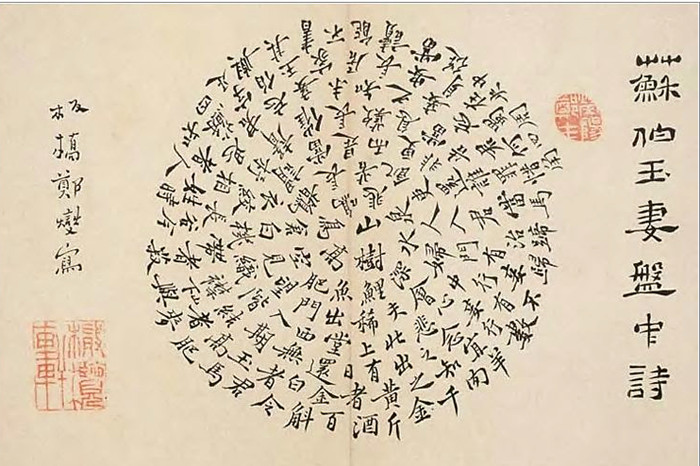 蘇伯玉妻盤中詩
山樹高
鳥鳴悲
泉水深
鯉魚肥
空倉雀
常苦飢
吏人婦
會夫稀
出門望
見白衣
謂當是
而更非
還入門
中心悲
北上堂
西入階
急機絞
杼聲催
長歎息
當語誰
君有行
妾念之
出有日
還無期
結襟帶
長相思
君忘妾
未知之
妾忘君
罪當治
妾有行
宜知之
黃者金
白者玉
高者
者
姓者蘇
字伯玉
家居長安身在蜀
何惜馬蹄歸不數
羊肉千斤酒百斛
令君馬肥麥與粟
今時人
足
與其書
不能讀
當從中央周四
板橋鄭燮寫